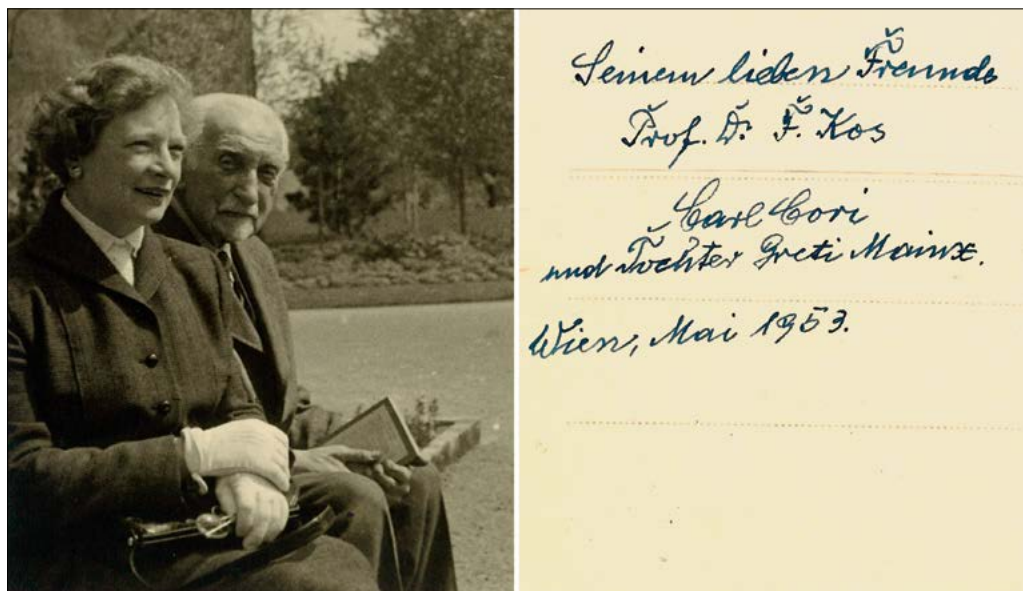 Seinem lieben Freunde
Prof. Dr. F. Kos
Carl Cori
und Tochter Greti Mainx.
Wien, Mai 1953.